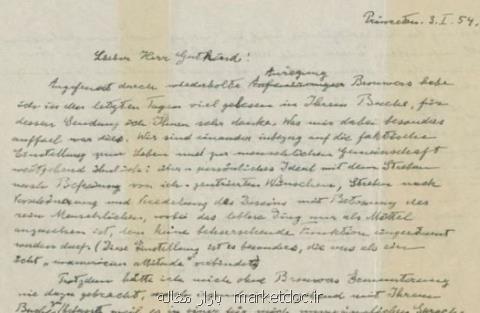 Princeton. 3. I. 54.
Lieber Herr Gutkind!
Angefeuert durch wiederholte Anregung Brouwers habe
ich in den letzten Tagen viel gelesen in Ihrem Buche, für
dessen Sendung ich Ihnen sehr danke. Was mir dabei besonders
auffiel war dies. Wir sind einander inbezug auf die faktische
Einstellung zum Leben und zur menschlichen Gemeinschaft
weitgehend ähnlich: über-persönliches Ideal mit dem Streben
nach Befreiung von ich-zentrierten Wünschen, Streben nach
Verschönerung und Veredelung des Daseins mit Betonung des
rein Menschlichen, wobei das leblose Ding nur als Mittel
anzusehen ist, dem keine beherrschende Funktion eingeräumt
werden darf. (Diese Einstellung ist es besonders, die uns als ein
echt "unamerican attitude" verbindet)
Trotzdem hätte ich mich ohne Brouwers Ermunterung
nie dazu gebracht, mit Ihrem
Buche weil es in einer für mich Sprache
بازار مقاله marketdoc.ir